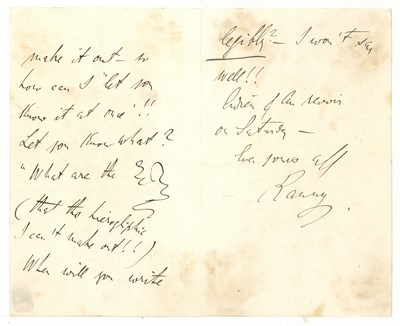 make it out – so
how can I "let you
know it at once"!!
Let you know what?
"What are the
(that the hieroglyphic
I can't make out!!)
When will you write
legibly? – I won't say
well!!
Adieu & Au revoir
on Saturday –
Ever yours aff
Ranny.